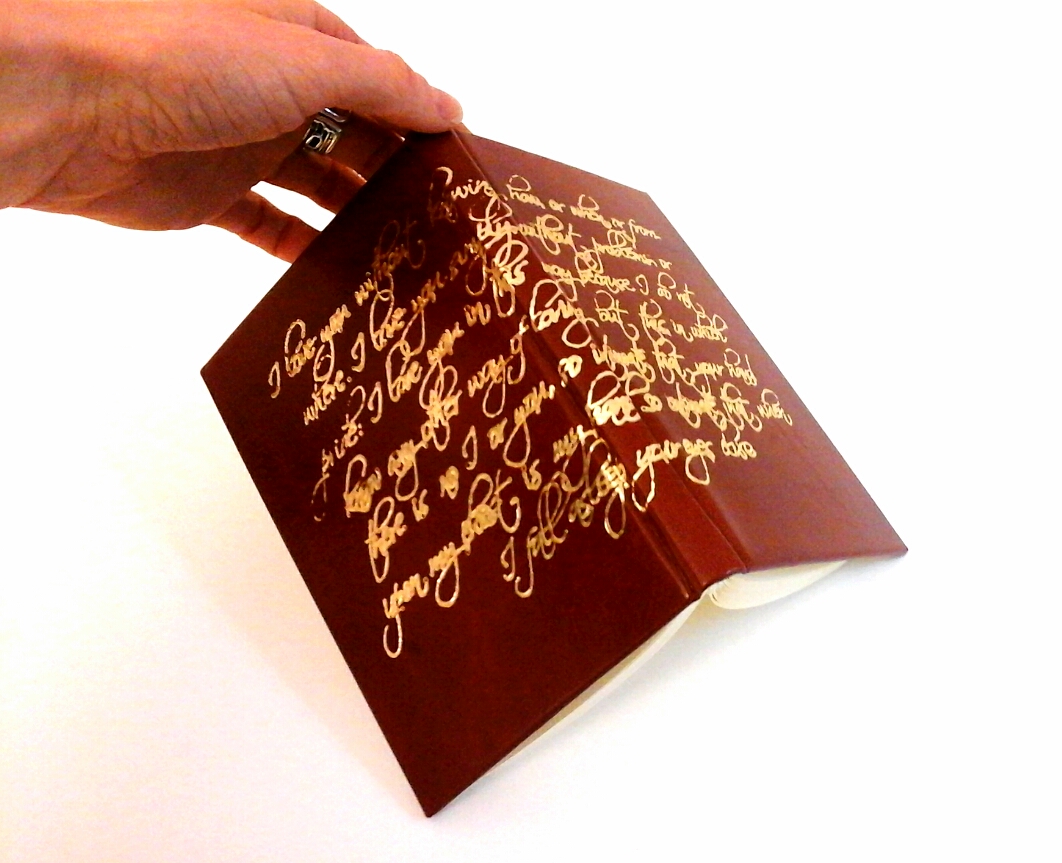 I love you without knowing how, or when, or from
where. I love you simply, without problems or
pride: I love you in this way because I do not
know any other way of loving but this, in which
there is no I or you, so intimate that your hand
upon my chest is my hand, so intimate that when
I fall asleep your eyes close